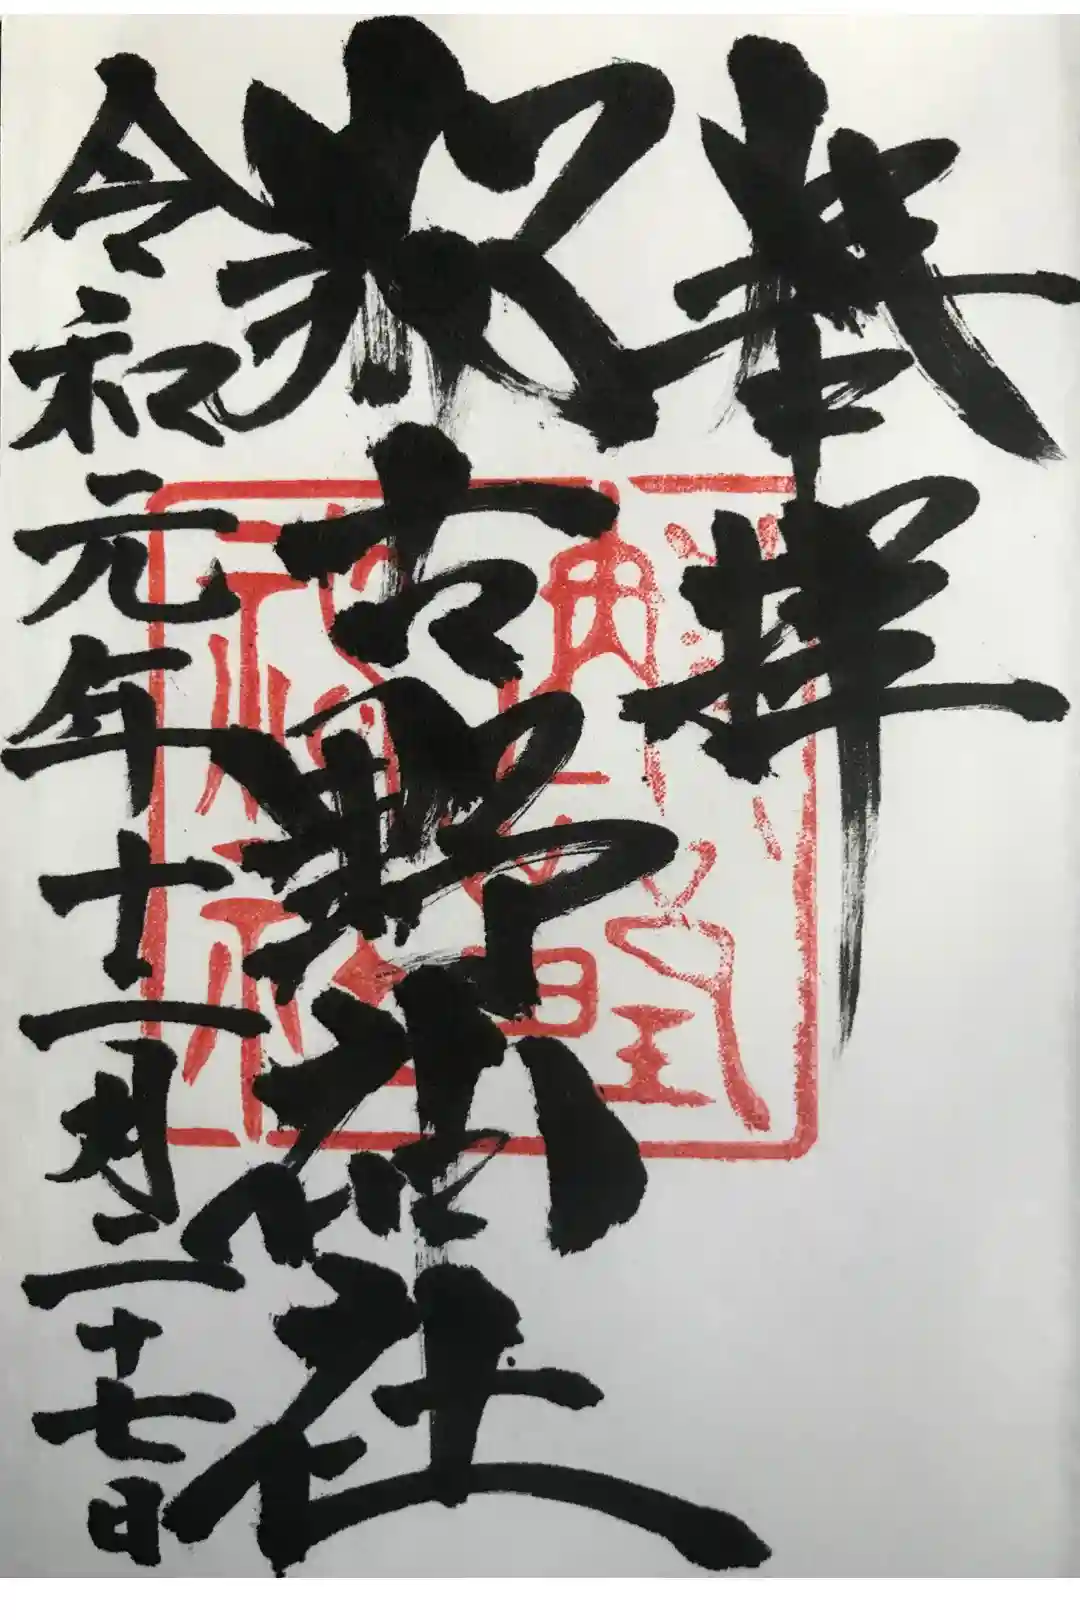 奉拝
古野神社
令和元年十一月二十七日